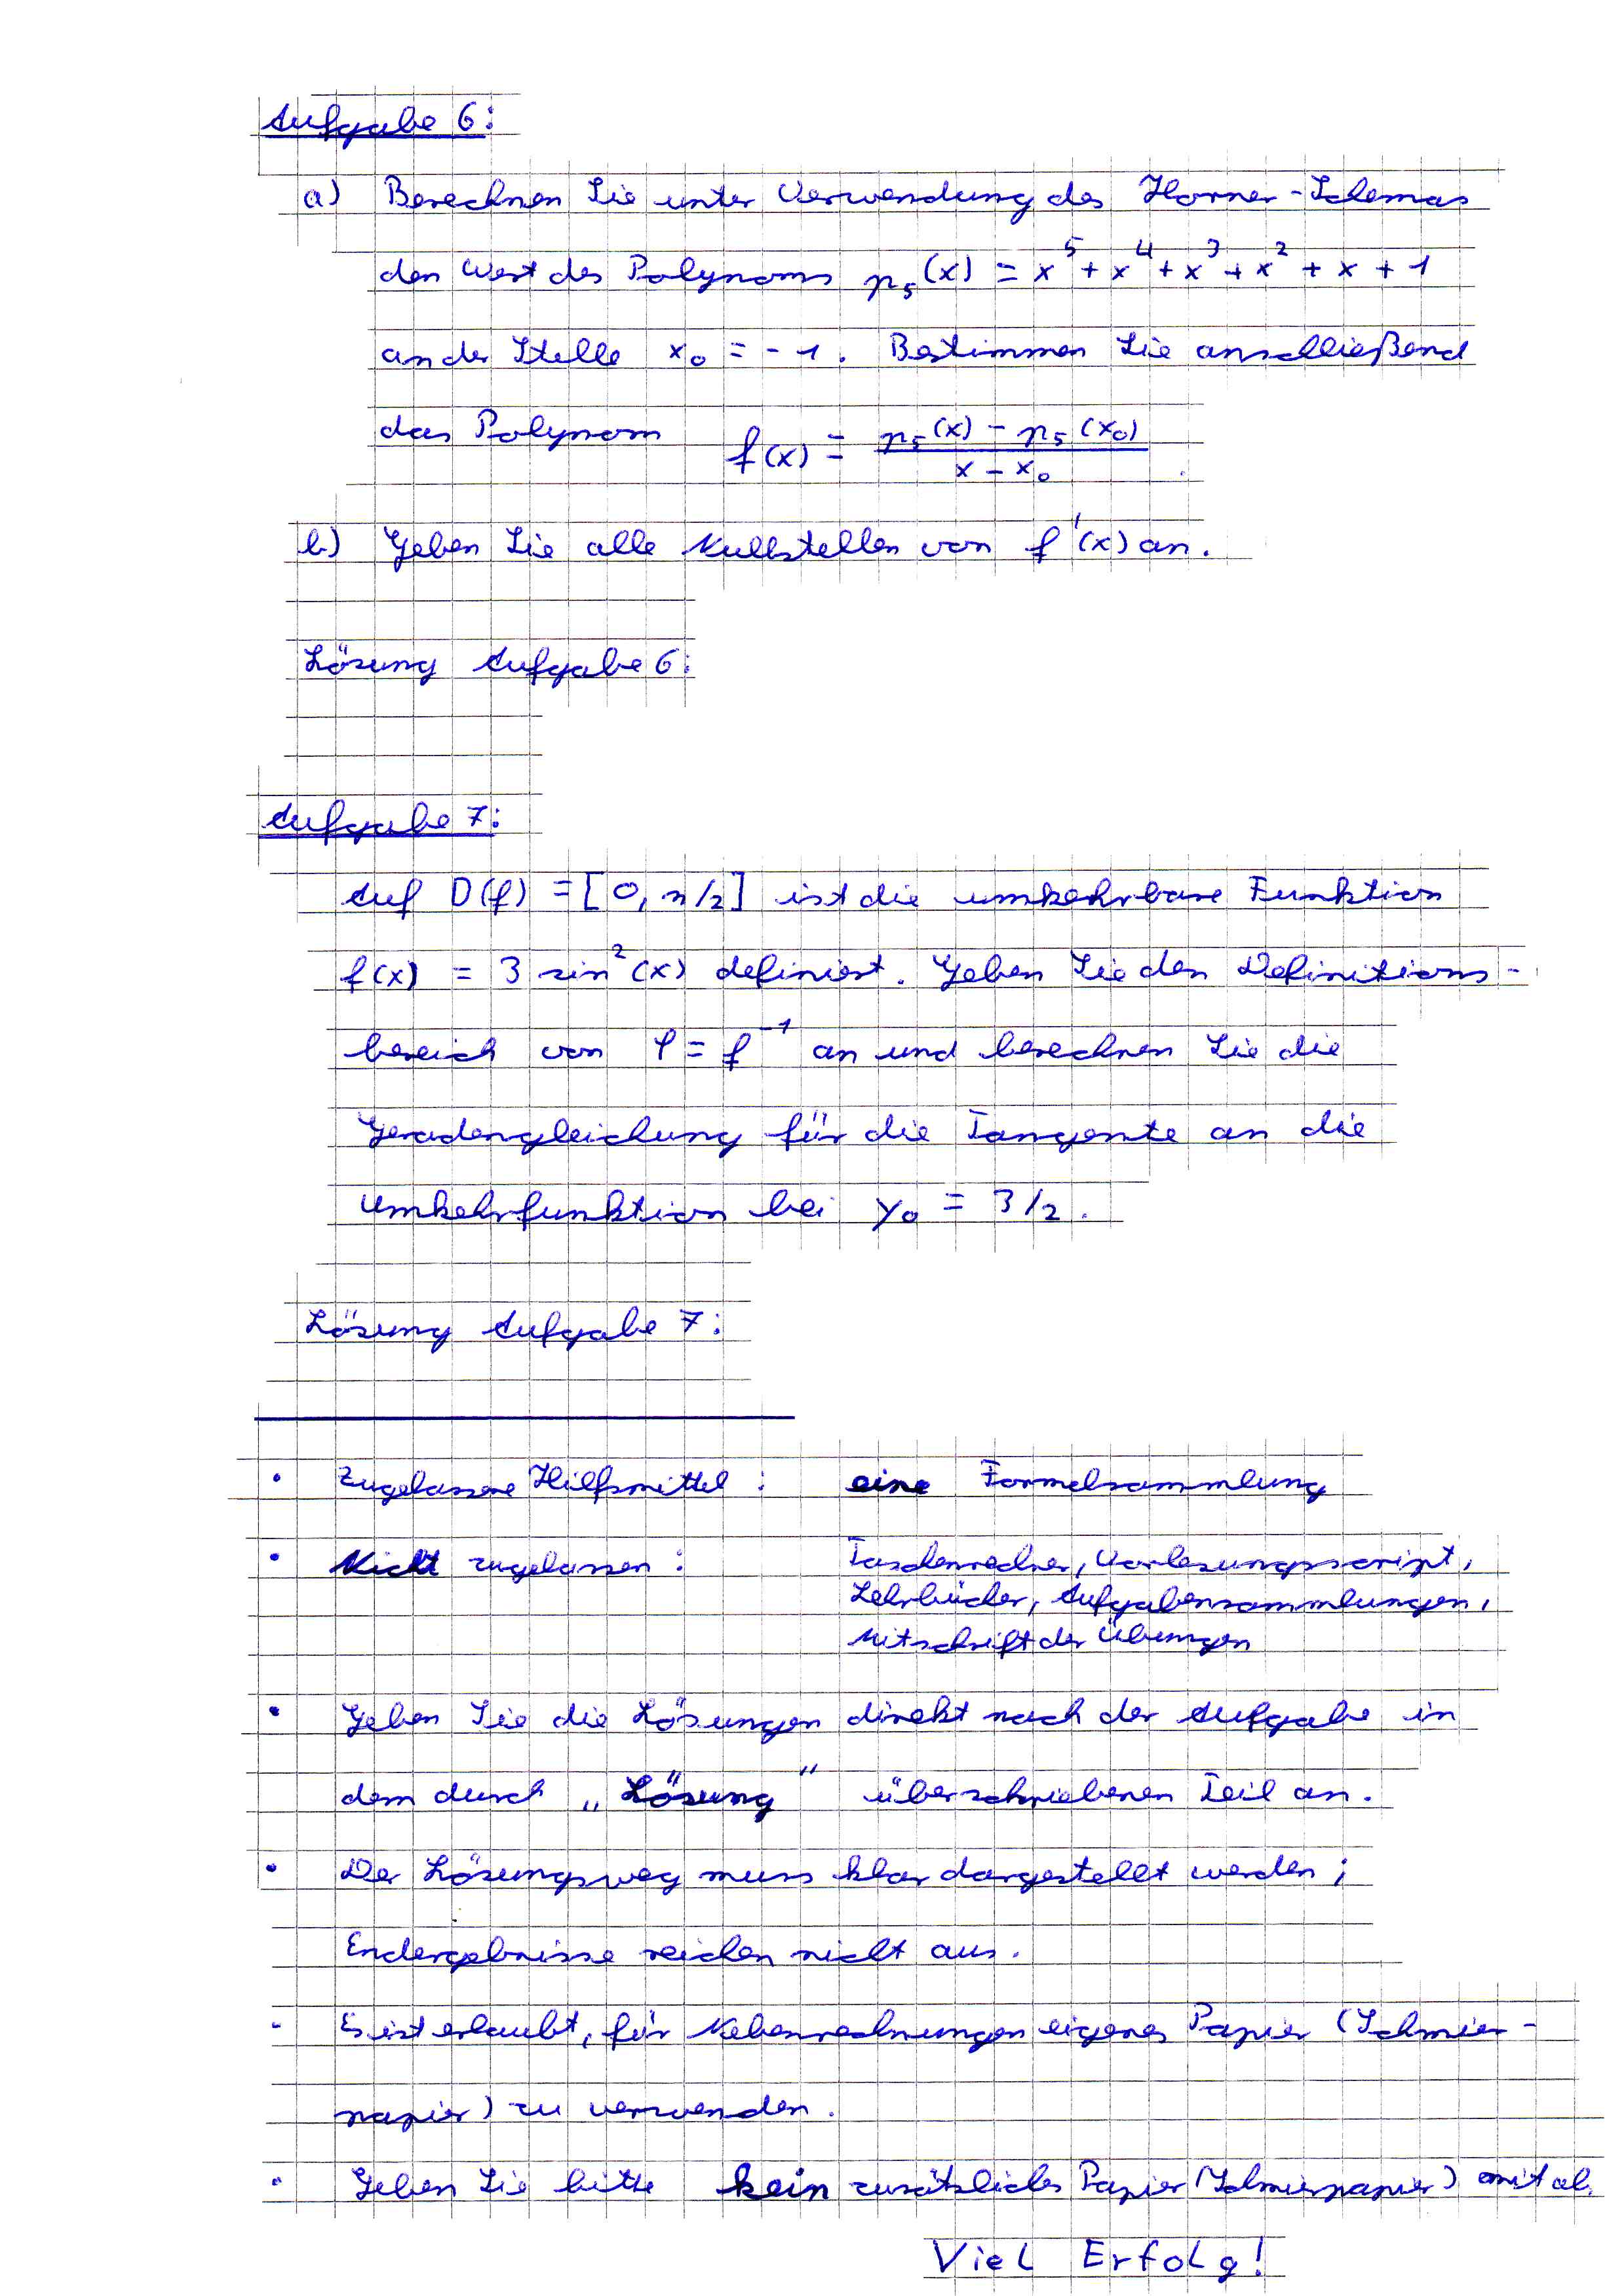 Aufgabe 6:
a) Berechnen Sie unter Verwendung des Horner-Schemas
den Wert des Polynoms p₅(x) = x⁵ + x⁴ + x³ + x² + x + 1
an der Stelle x₀ = -1. Bestimmen Sie anschließend
das Polynom f(x) = (p₅(x) - p₅(x₀)) / (x - x₀).
b) Geben Sie alle Nullstellen von f'(x) an.
Lösung Aufgabe 6:
Aufgabe 7:
Auf D(f) = [0, π/2] ist die umkehrbare Funktion
f(x) = 3 sin²(x) definiert. Geben Sie den Definitions-
bereich von φ = f⁻¹ an und berechnen Sie die
Geradengleichung für die Tangente an die
Umkehrfunktion bei y₀ = 3/2.
Lösung Aufgabe 7:
• Zugelassene Hilfsmittel: eine Formelsammlung
• Nicht zugelassen: Taschenrechner, Vorlesungsscript,
Lehrbücher, Aufgabensammlungen,
Mitschrift der Übungen
• Geben Sie die Lösungen direkt nach der Aufgabe in
dem durch „Lösung" überschriebenen Teil an.
• Der Lösungsweg muss klar dargestellt werden;
Endergebnisse reichen nicht aus.
- Es ist erlaubt, für Nebenrechnungen eigenes Papier (Schmier-
papier) zu verwenden.
• Geben Sie bitte kein zusätzliches Papier (Schmierpapier) mit ab.
Viel Erfolg!